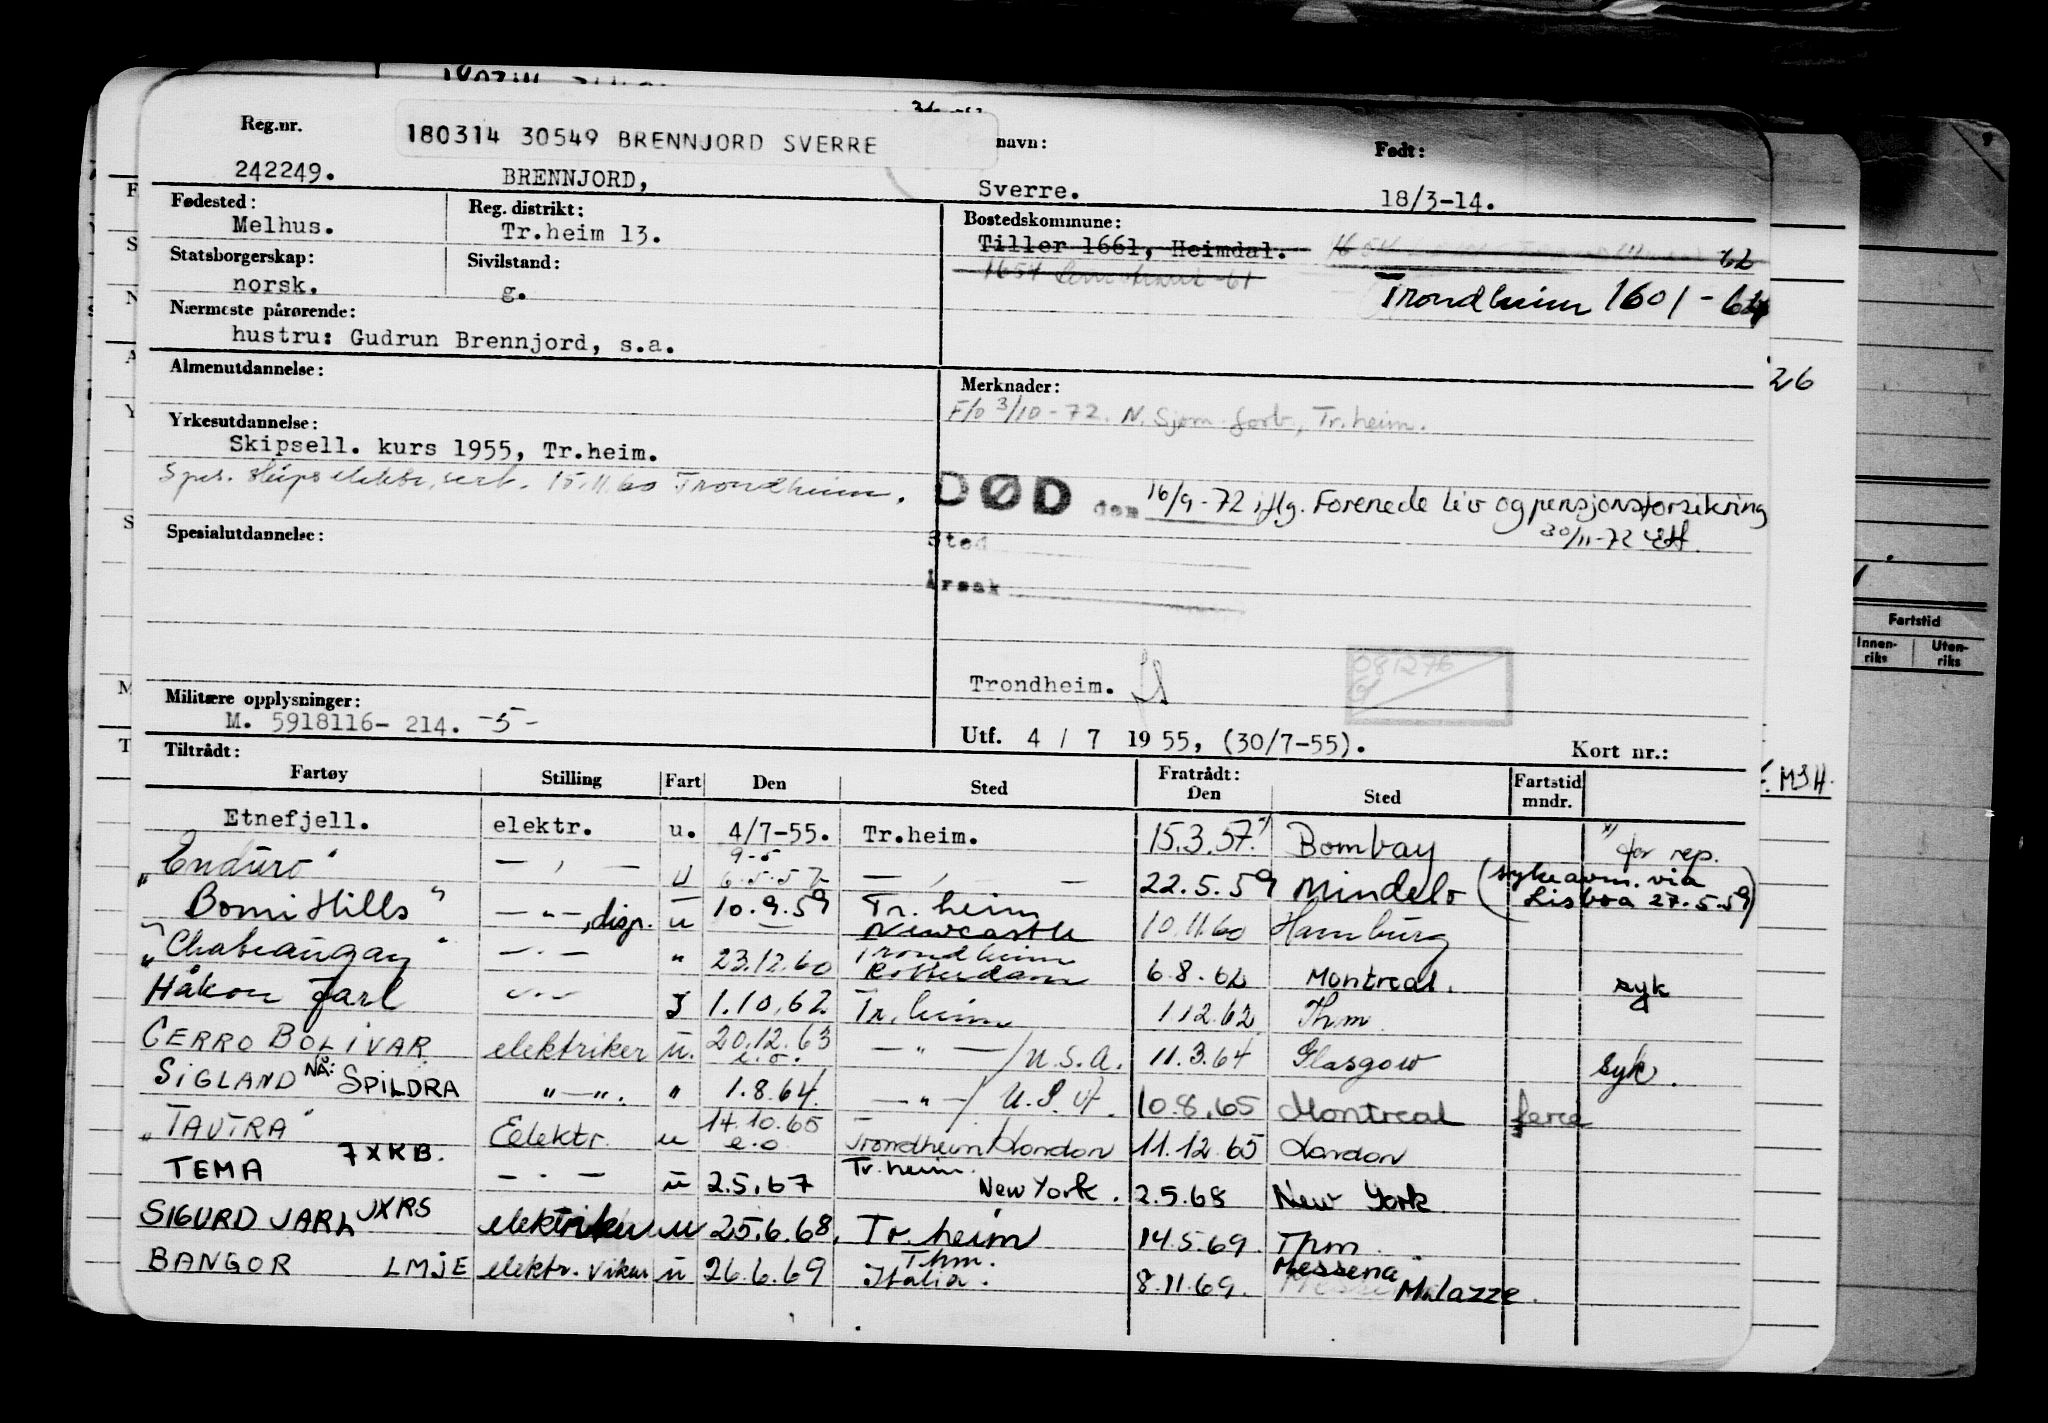 Reg.nr.
180314 30549 BRENNJORD SVERRE
navn:
Født:
242249.
BRENNJORD,
Sverre.
18/3-14.
Fødested:
Melhus.
Reg. distrikt:
Tr.heim 13.
Bostedskommune:
Tiller 1661, Heimdal.
1654
62
1654 -61
Trondheim 1601-64
Statsborgerskap:
norsk.
Sivilstand:
g.
Nærmeste pårørende:
hustru: Gudrun Brennjord, s.a.
Almenutdannelse:
Merknader:
26
F/o 3/10-72. N. Sjøm. forb., Tr.heim.
Yrkesutdannelse:
Skipsell. kurs 1955, Tr.heim.
Spes. skipselektr. sert. 15.11.60 Trondheim.
DØD den 16/9-72 iflg. Forenede liv og pensjonsforsikring
30/11-72
Sted
Årsak
Spesialutdannelse:
Trondheim.
081276
Militære opplysninger:
M. 5918116- 214. -5-
Utf. 4 / 7 1955, (30/7-55).
Kort nr.:
Tiltrådt:
Fartøy Stilling Fart Den Sted Fratrådt: Den Sted Fartstid mndr.
M34.
Etnefjell. elektr. u. 4/7-55. Tr.heim. 15.3.57. x) Bombay x) for rep.
"Enduro" — , — u 9-5 6.5.57 — , — 22.5.59 Mindelo (sykeavm. via Lisboa 27.5.59)
"Bomi Hills" — " —, disp. u 10.9.59 Tr.heim Newcastle 10.11.60 Hamburg
"Chateaugay" — . — " 23.12.60 Trondheim Rotterdam 6.8.62 Montreal. syk
Håkon Jarl — " — I 1.10.62 Tr.heim 1.12.62 Thm.
CERRO BOLIVAR elektriker u. 20.12.63 e.o. — " — / U.S.A. 11.3.64 Glasgow syk.
SIGLAND NÅ: SPILDRA " — ". " 1.8.64. — " — / U.S.A. 10.8.65 Montreal ferie
"TAUTRA" Eelektr. u 14.10.65 e.o. Trondheim/London 11.12.65 London
TEMA 7XKB. — . — u 2.5.67 Tr.heim. New York. 2.5.68 New York
SIGURD JARL JXRS elektriker u 25.6.68. Tr.heim 14.5.69. Thm.
BANGOR LMJE elektr. vikar u 26.6.69 Thm. Italia. 8.11.69. Messena Milazze.
Fartstid
Innen-riks
Uten-riks